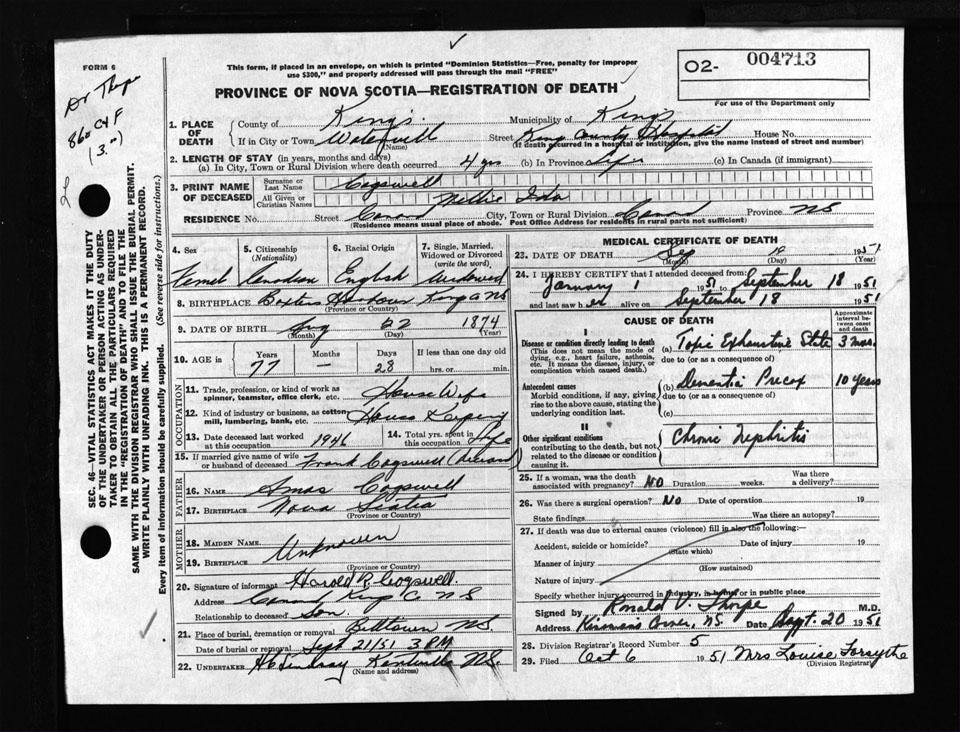 FORM 6
Dr Thorpe
860 Cy F
(3.")
This form, if placed in an envelope, on which is printed "Dominion Statistics—Free, penalty for improper
use $300," and properly addressed will pass through the mail "FREE"
02- 004713
For use of the Department only
PROVINCE OF NOVA SCOTIA—REGISTRATION OF DEATH
1. PLACE OF DEATH County of Kings Municipality of Kings
If in City or Town Waterville (Name) Street King County Hospital House No.
(If death occurred in a hospital or institution, give the name instead of street and number)
2. LENGTH OF STAY (in years, months and days)
(a) In City, Town or Rural Division where death occurred 4 yrs (b) In Province Life (c) In Canada (if immigrant)
3. PRINT NAME OF DECEASED Surname or Last Name Cogswell
All Given or Christian Names Nellie Ida
RESIDENCE No. Street Canard City, Town or Rural Division Canard Province NS
(Residence means usual place of abode. Post Office Address for residents in rural parts not sufficient)
4. Sex 5. Citizenship (Nationality) 6. Racial Origin 7. Single, Married, Widowed or Divorced (write the word)
Femal Canadian English Widowed
8. BIRTHPLACE Baxters Harbour Kings Co NS
(Province or Country)
9. DATE OF BIRTH Aug 22 1874
(Month) (Day) (Year)
10. AGE in Years Months Days If less than one day old
77 — 28 hrs. or min.
OCCUPATION
11. Trade, profession, or kind of work as spinner, teamster, office clerk, etc. House Wife
12. Kind of industry or business, as cotton mill, lumbering, bank, etc. House Keeping
13. Date deceased last worked at this occupation 1946 14. Total yrs. spent in this occupation Life
15. If married give name of wife or husband of deceased Frank Cogswell
FATHER
16. NAME Amos Cogswell
17. BIRTHPLACE Nova Scotia
(Province or Country)
MOTHER
18. MAIDEN NAME Unknown
19. BIRTHPLACE
(Province or Country)
20. Signature of informant Harold R. Cogswell.
Address Canard Kings Co NS
Relationship to deceased Son.
21. Place of burial, cremation or removal Billtown NS.
Date of burial or removal Sept 21/51 3 PM
22. UNDERTAKER H C Lindsay Kentville NS.
(Name and address)
MEDICAL CERTIFICATE OF DEATH
23. DATE OF DEATH Sep 19 1951
(Month) (Day)
24. I HEREBY CERTIFY that I attended deceased from
January 1 1951 to September 18 1951
and last saw her alive on September 18 1951
CAUSE OF DEATH
Approximate interval between onset and death
I
Disease or condition directly leading to death
(This does not mean the mode of dying, e.g., heart failure, asthenia, etc. It means the disease, injury, or complication which caused death.)
(a) Toxic Exhaustive State 3 mos.
due to (or as a consequence of)
Antecedent causes
Morbid conditions, if any, giving rise to the above cause, stating the underlying condition last.
(b) Dementia Precox 10 years
due to (or as a consequence of)
(c)
II
Other significant conditions
contributing to the death, but not related to the disease or condition causing it.
Chronic Nephritis
25. If a woman, was the death associated with pregnancy? NO Duration weeks. Was there a delivery?
26. Was there a surgical operation? No Date of operation 19
State findings Was there an autopsy?
27. If death was due to external causes (violence) fill in also the following:—
Accident, suicide or homicide? Date of injury 19
(State which)
Manner of injury
(How sustained)
Nature of injury
Specify whether injury occurred in industry, in home or in public place
Signed by Ronald V. Thorpe M.D.
Address Kinsman's Corner, NS. Date Sept. 20 1951
28. Division Registrar's Record Number 5
29. Filed Oct 6 1951 Mrs Louise Forsythe
(Division Registrar)
SEC. 46—VITAL STATISTICS ACT MAKES IT THE DUTY
OF THE UNDERTAKER OR PERSON ACTING AS UNDER-
TAKER TO OBTAIN ALL THE PARTICULARS REQUIRED
IN THE "REGISTRATION OF DEATH" AND TO FILE THE
SAME WITH THE DIVISION REGISTRAR WHO SHALL ISSUE THE BURIAL PERMIT.
WRITE PLAINLY WITH UNFADING INK. THIS IS A PERMANENT RECORD.
Every item of information should be carefully supplied. (See reverse side for instructions.)